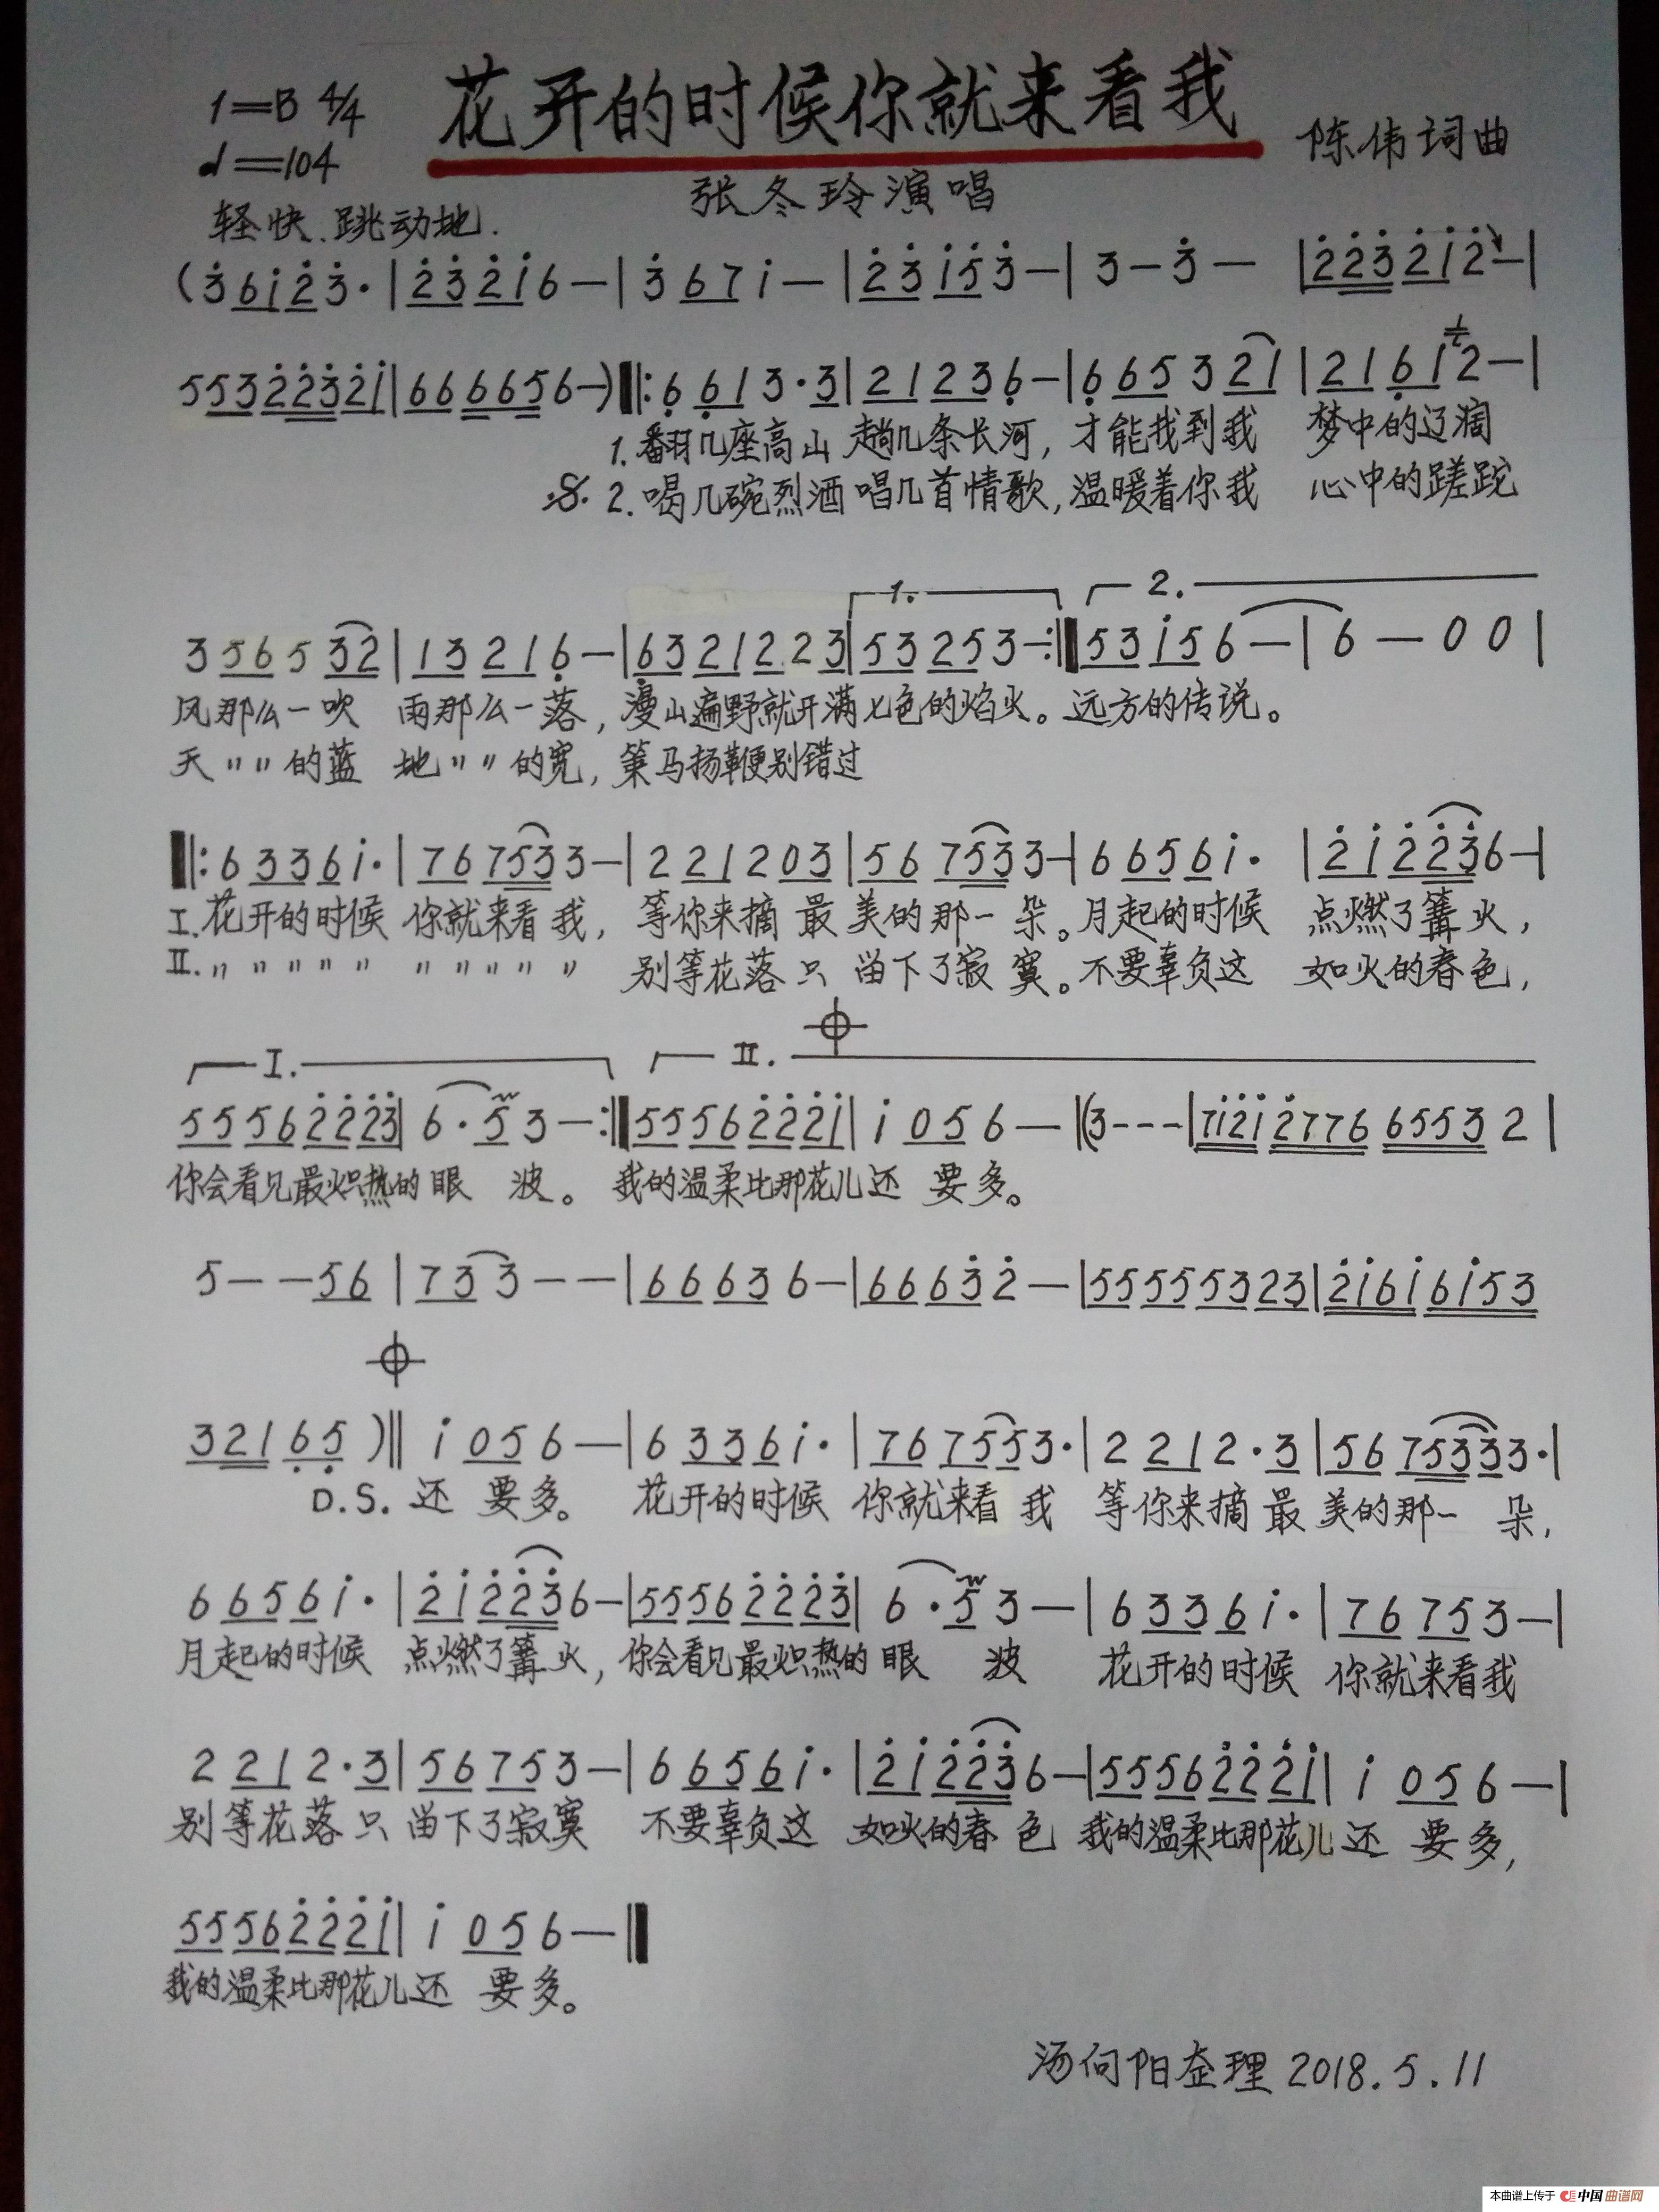 1=B 4/4
花开的时候你就来看我
陈伟词曲
♩=104
张冬玲演唱
轻快.跳动地.
(3̇ 6 i 2̇ 3̇·|2̇ 3̇ 2̇ i 6 —|3̇ 6 7 i —|2̇ 3̇ i 5 3̇ —|3 — 3̇ — |2̇ 2̇ 3̇ 2̇ i 2̇ —|
5 5 3 2̇ 2̇ 3̇ 2̇ i|6 6 6 6 5 6 —)‖:6̣ 6̣ 1 3·3|2 1 2 3 6̣ —|6̣ 6 5 3 2 1|2 1 6̣ 1 2 —|
1.翻几座高山 趟几条长河,才能找到我 梦中的辽阔
2.喝几碗烈酒 唱几首情歌,温暖着你我 心中的蹉跎
1. 2.
3 5 6 5 3 2|1 3 2 1 6̣ —|6̣ 3 2 1 2 2 3|5 3 2 5 3 —:‖5 3 i 5 6 —|6 — 0 0|
风那么一吹 雨那么一落,漫山遍野就开满七色的焰火。远方的传说。
天〃〃的蓝 地〃〃的宽,策马扬鞭别错过
‖:6 3 3 6 i·|7 6 7 5 3 3 —|2 2 1 2 0 3|5 6 7 5 3 3 —|6 6 5 6 i·|2̇ i 2̇ 2̇ 3̇ 6 —|
I.花开的时候 你就来看我,等你来摘 最 美的那一 朵。月起的时候 点燃了篝火,
II.〃〃〃〃〃 〃〃〃〃〃 别等花落只 留下了寂 寞。不要辜负这 如火的春色,
I. II.
5 5 5 6 2̇ 2̇ 2̇ 3̇|6·5 3 —:‖5 5 5 6 2̇ 2̇ 2̇ i|i 0 5 6 —|(3 - - -|7 i 2̇ i 2̇ 7 7 6 6 5 5 3 2|
你会看见最炽热的眼 波。 我的温柔比那花儿还 要多。
5 — — 5 6|7 3 3 — —|6 6 6 3 6 —|6 6 6 3̇ 2̇ —|5 5 5 5 5 3 2 3|2̇ i 6 i 6 i 5 3
3 2 1 6̣ 5̣ )‖ i 0 5 6 —|6 3 3 6 i·|7 6 7 5 5 3·|2 2 1 2·3|5 6 7 5 3 3 3·|
D.S. 还 要多。 花开的时候 你就来看 我 等你来摘 最 美的那一 朵,
6 6 5 6 i·|2̇ i 2̇ 2̇ 3̇ 6 —|5 5 5 6 2̇ 2̇ 2̇ 3̇|6·5 3 —|6 3 3 6 i·|7 6 7 5 3 —|
月起的时候 点燃了篝火,你会看见最炽热的眼 波 花开的时候 你就来看我
2 2 1 2·3|5 6 7 5 3 —|6 6 5 6 i·|2̇ i 2̇ 2̇ 3̇ 6 —|5 5 5 6 2̇ 2̇ 2̇ i|i 0 5 6 —|
别等花落只 留下了寂寞 不要辜负这 如火的春 色 我的温柔比那花儿还 要多,
5 5 5 6 2̇ 2̇ 2̇ i|i 0 5 6 —‖
我的温柔比那花儿还 要多。
汤向阳整理 2018.5.11
本曲谱上传于 中国曲谱网